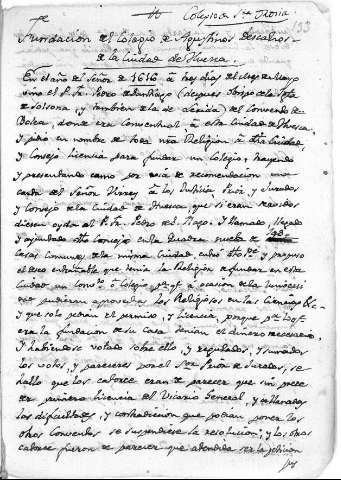 Colegio de Sta Monica
193
Fundacion del Colegio de Agustinos Descalzos
de la Ciudad de Huesca.
En el año del Señor de 1616 à tres dias del Mes de Mayo
vino el P. Fr. Pedro de Santiago (despues Obispo de la Sta
de Solsona, y tambien de la de Lerida) del Convento de
Bolea, donde era Conventual à esta Ciudad de Huesca,
y pidio en nombre de toda nra Religion à dha Ciudad
y Consejo licencia para fundar un Colegio, trayendo
y presentando como por via de recomendacion una
carta del Señor Virrey à los Justicia, Prior, y Jurados
y Consejo de la Ciudad de Huesca que si eran servidos
diesen oydo al P. Fr. Pedro de S. Tiago. Y llamado, llegado
y ajuntado dho Consejo en la Quadra nueba de las
Casas Comunes de la misma Ciudad, entrò dho Pe. y propuso
el deseo entrañable que tenia la Religion de fundar en esta
Ciudad un Convto. ò Colegio, pa. q. à ocasion de la Universi
dad pudieran aprovechar los Religiosos en las Ciencias &c.
y que solo pedian el permiso, y Licencia, porque pa.
era la fundacion de su Casa tenian el dinero necesario,
y habiendose votado sobre ello, y regulados, y sumados
los votos, y pareceres por el Sor. Prior de Jurados, se
hallo que los catorce eran de parecer que sin prece
der primero licencia del Vicario General, y allanadas
las dificultades, y contradicion que podian poner los
otros Conventos se suspendiese la resolucion; y los otros
catorce fueron de parecer que atendida ser la peticion